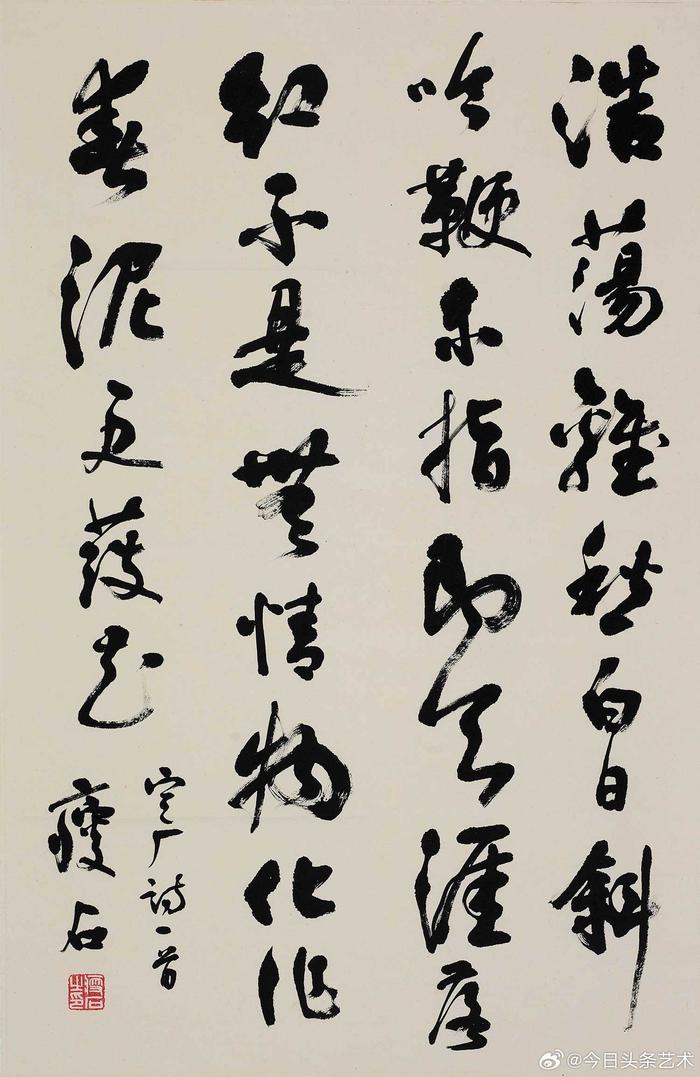 浩蕩離愁白日斜
吟鞭東指即天涯落
紅不是無情物化作
春泥更護花
定厂詩一首
瘦石
瘦石之印
@今日头条艺术